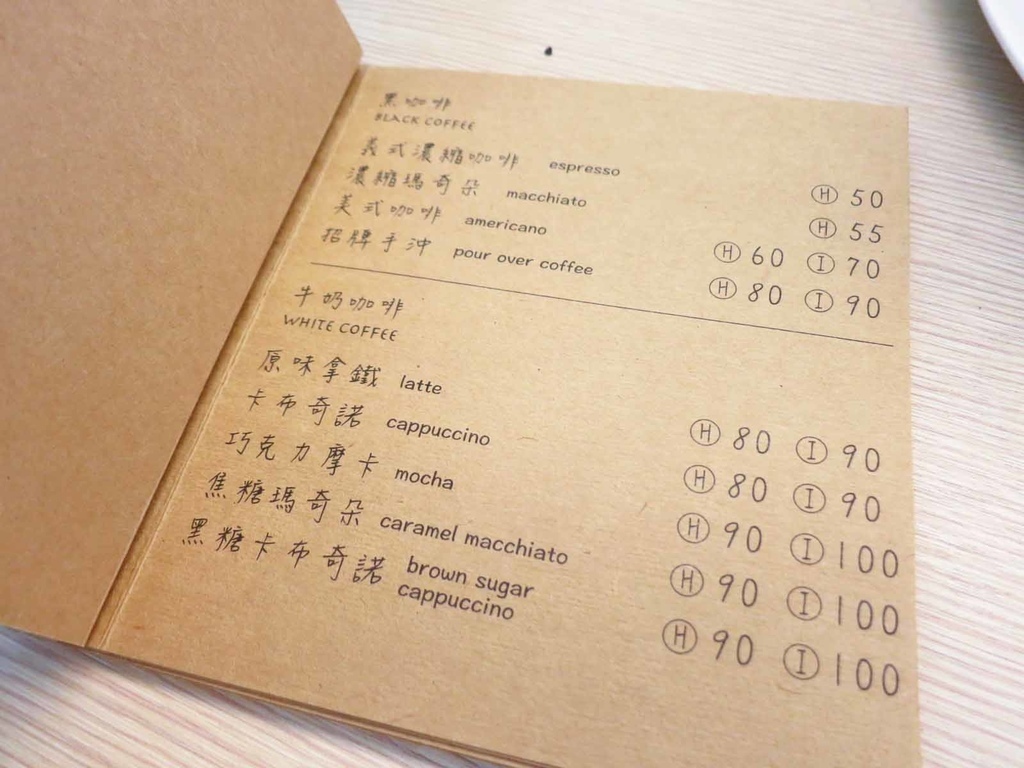 黑咖啡
BLACK COFFEE
義式濃縮咖啡 espresso Ⓗ 50
濃縮瑪奇朵 macchiato Ⓗ 55
美式咖啡 americano Ⓗ 60 Ⓘ 70
招牌手沖 pour over coffee Ⓗ 80 Ⓘ 90
牛奶咖啡
WHITE COFFEE
原味拿鐵 latte Ⓗ 80 Ⓘ 90
卡布奇諾 cappuccino Ⓗ 80 Ⓘ 90
巧克力摩卡 mocha Ⓗ 90 Ⓘ 100
焦糖瑪奇朵 caramel macchiato Ⓗ 90 Ⓘ 100
黑糖卡布奇諾 brown sugar
cappuccino Ⓗ 90 Ⓘ 100